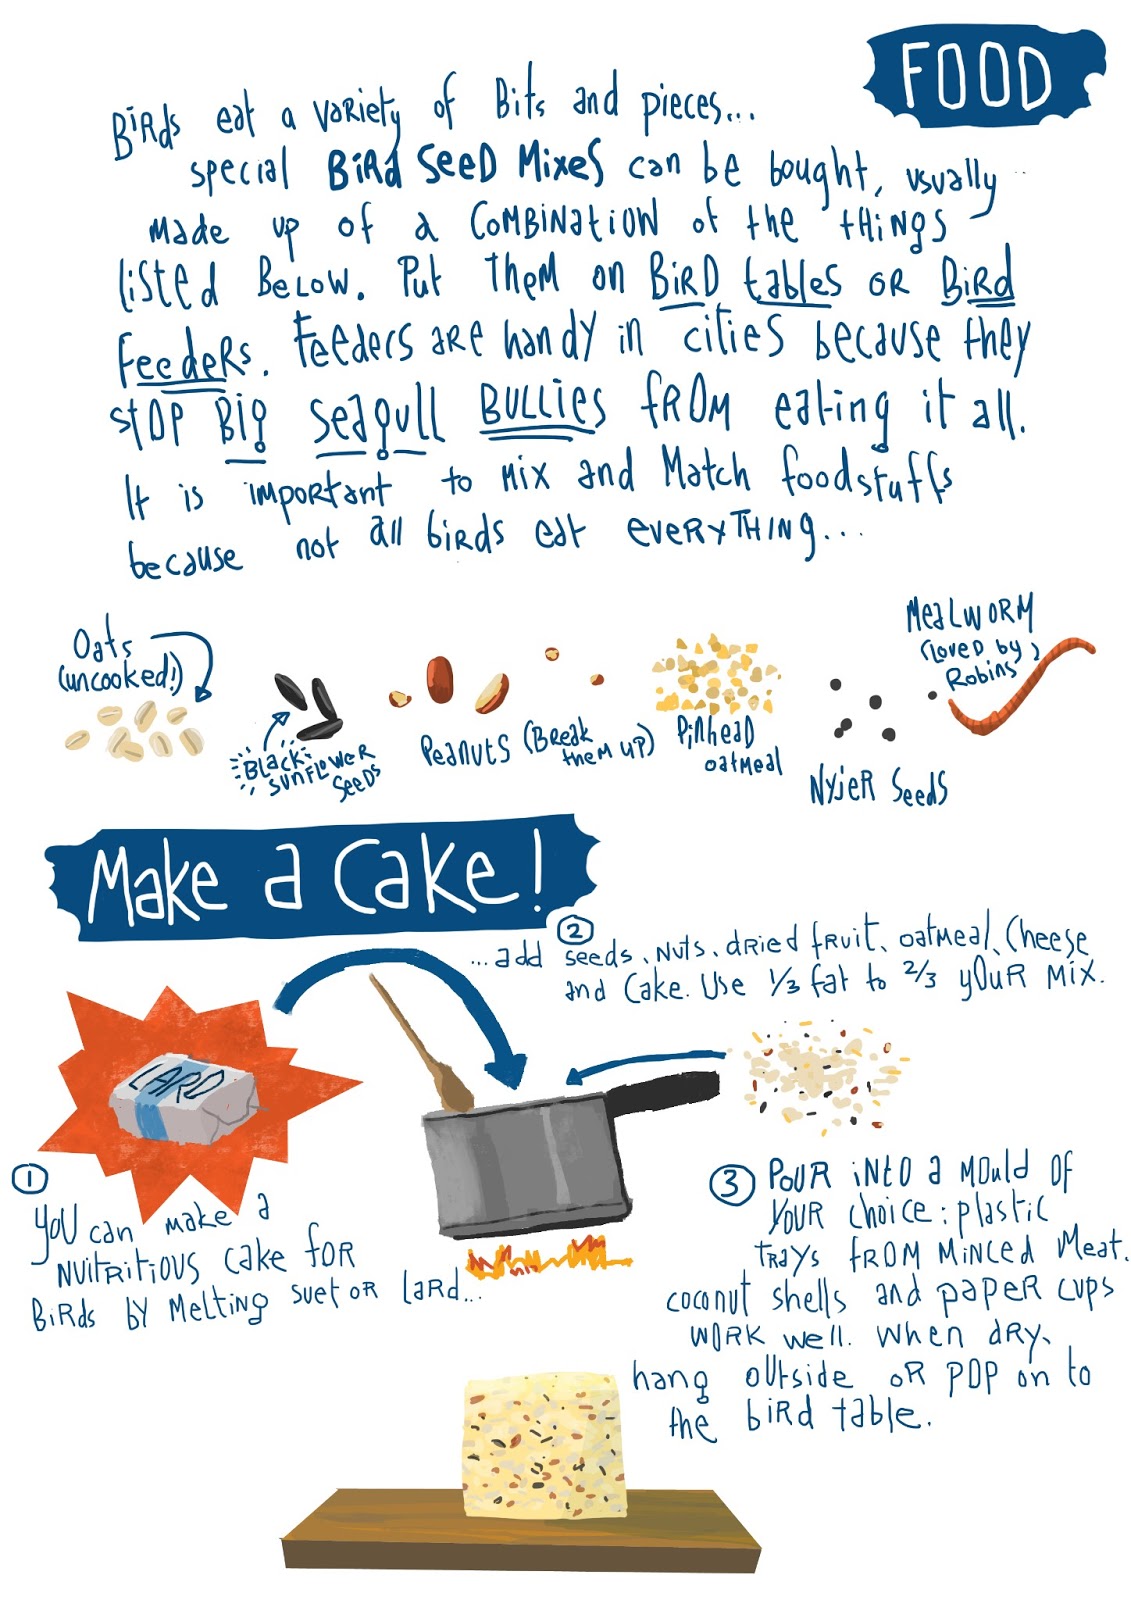 FOOD
Birds eat a variety of Bits and pieces...
special Bird Seed Mixes can be bought, usually
made up of a combination of the things
listed below. Put them on Bird tables or Bird
feeders. Feeders are handy in cities because they
stop Big seagull BULLIES from eating it all.
It is important to mix and match foodstuffs
because not all birds eat everything...
Oats
(uncooked!)
Black
sunflower
seeds
Peanuts (Break
them up)
Pinhead
oatmeal
Nyjer Seeds
Mealworm
(loved by
Robins)
Make a Cake!
② ...add seeds, nuts, dried fruit, oatmeal, cheese
and cake. Use 1/3 fat to 2/3 your mix.
LARD
① You can make a
nuitritious cake for
birds by melting suet or lard...
③ Pour into a mould of
your choice: plastic
trays from minced meat.
coconut shells and paper cups
work well. When dry,
hang outside or pop on to
the bird table.